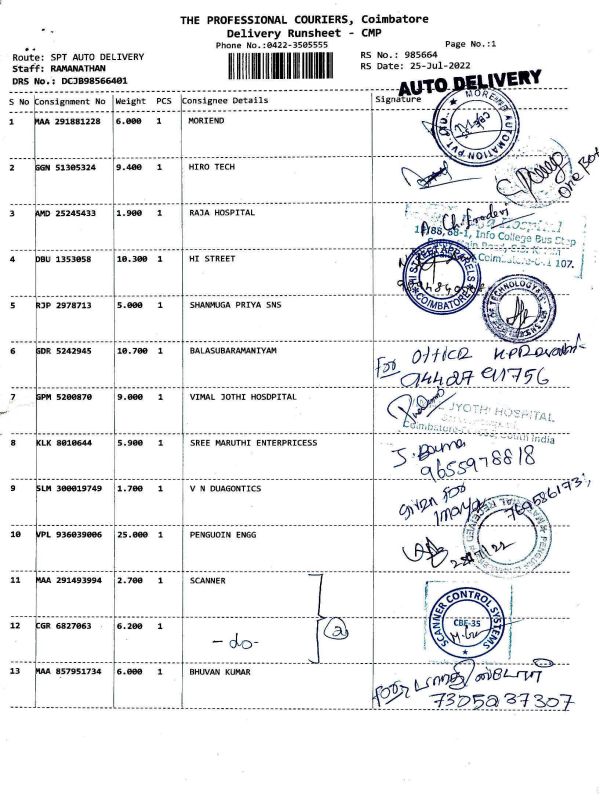 THE PROFESSIONAL COURIERS, Coimbatore
Delivery Runsheet - CMP
Phone No.:0422-3505555
Page No.:1
Route: SPT AUTO DELIVERY
RS No.: 985664
Staff: RAMANATHAN
RS Date: 25-Jul-2022
DRS No.: DCJB98566401
AUTO DELIVERY
S No Consignment No Weight PCS Consignee Details Signature
1 MAA 291881228 6.000 1 MORIEND
MOREND AUTOMATION PVT LTD.
2 GGN 51305324 9.400 1 HIRO TECH
3 AMD 25245433 1.900 1 RAJA HOSPITAL
Hospital
88-1, Info College Bus Stop
107.
4 DBU 1353058 10.300 1 HI STREET
HI STREET APPARELS
COIMBATORE
5 RJP 2978713 5.000 1 SHANMUGA PRIYA SNS
OF TECHNOLOGY
6 GDR 5242945 10.700 1 BALASUBARAMANIYAM
For OFFICE
94427 91756
7 GPM 5200870 9.000 1 VIMAL JOTHI HOSDPITAL
JYOTHI HOSPITAL
South India
8 KLK 8010644 5.900 1 SREE MARUTHI ENTERPRICESS
9655978818
9 SLM 300019749 1.700 1 V N DUAGONTICS
given for
10 VPL 936039006 25.000 1 PENGUOIN ENGG
11 MAA 291493994 2.700 1 SCANNER
SCANNER CONTROL SYSTEMS
CBE-35
12 CGR 6827063 6.200 1
- do -
2
13 MAA 857951734 6.000 1 BHUVAN KUMAR
7305237307